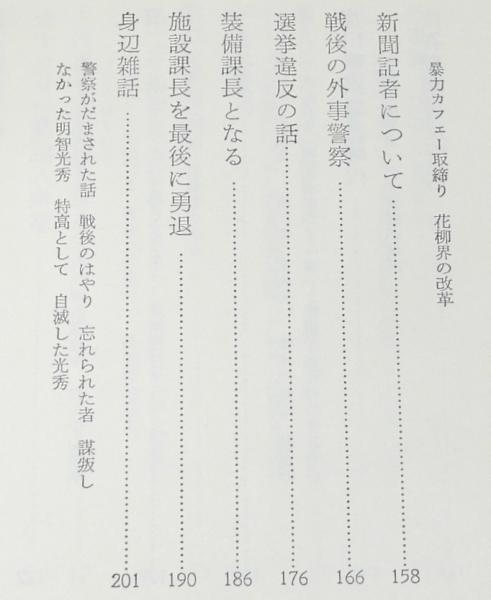 暴力カフェー取締り　花柳界の改革
新聞記者について……………………158
戦後の外事警察……………………166
選挙違反の話……………………176
装備課長となる……………………186
施設課長を最後に勇退……………………190
身辺雑話……………………201
警察がだまされた話　戦後のはやり　忘れられた者　謀叛し
なかった明智光秀　特高として　自滅した光秀